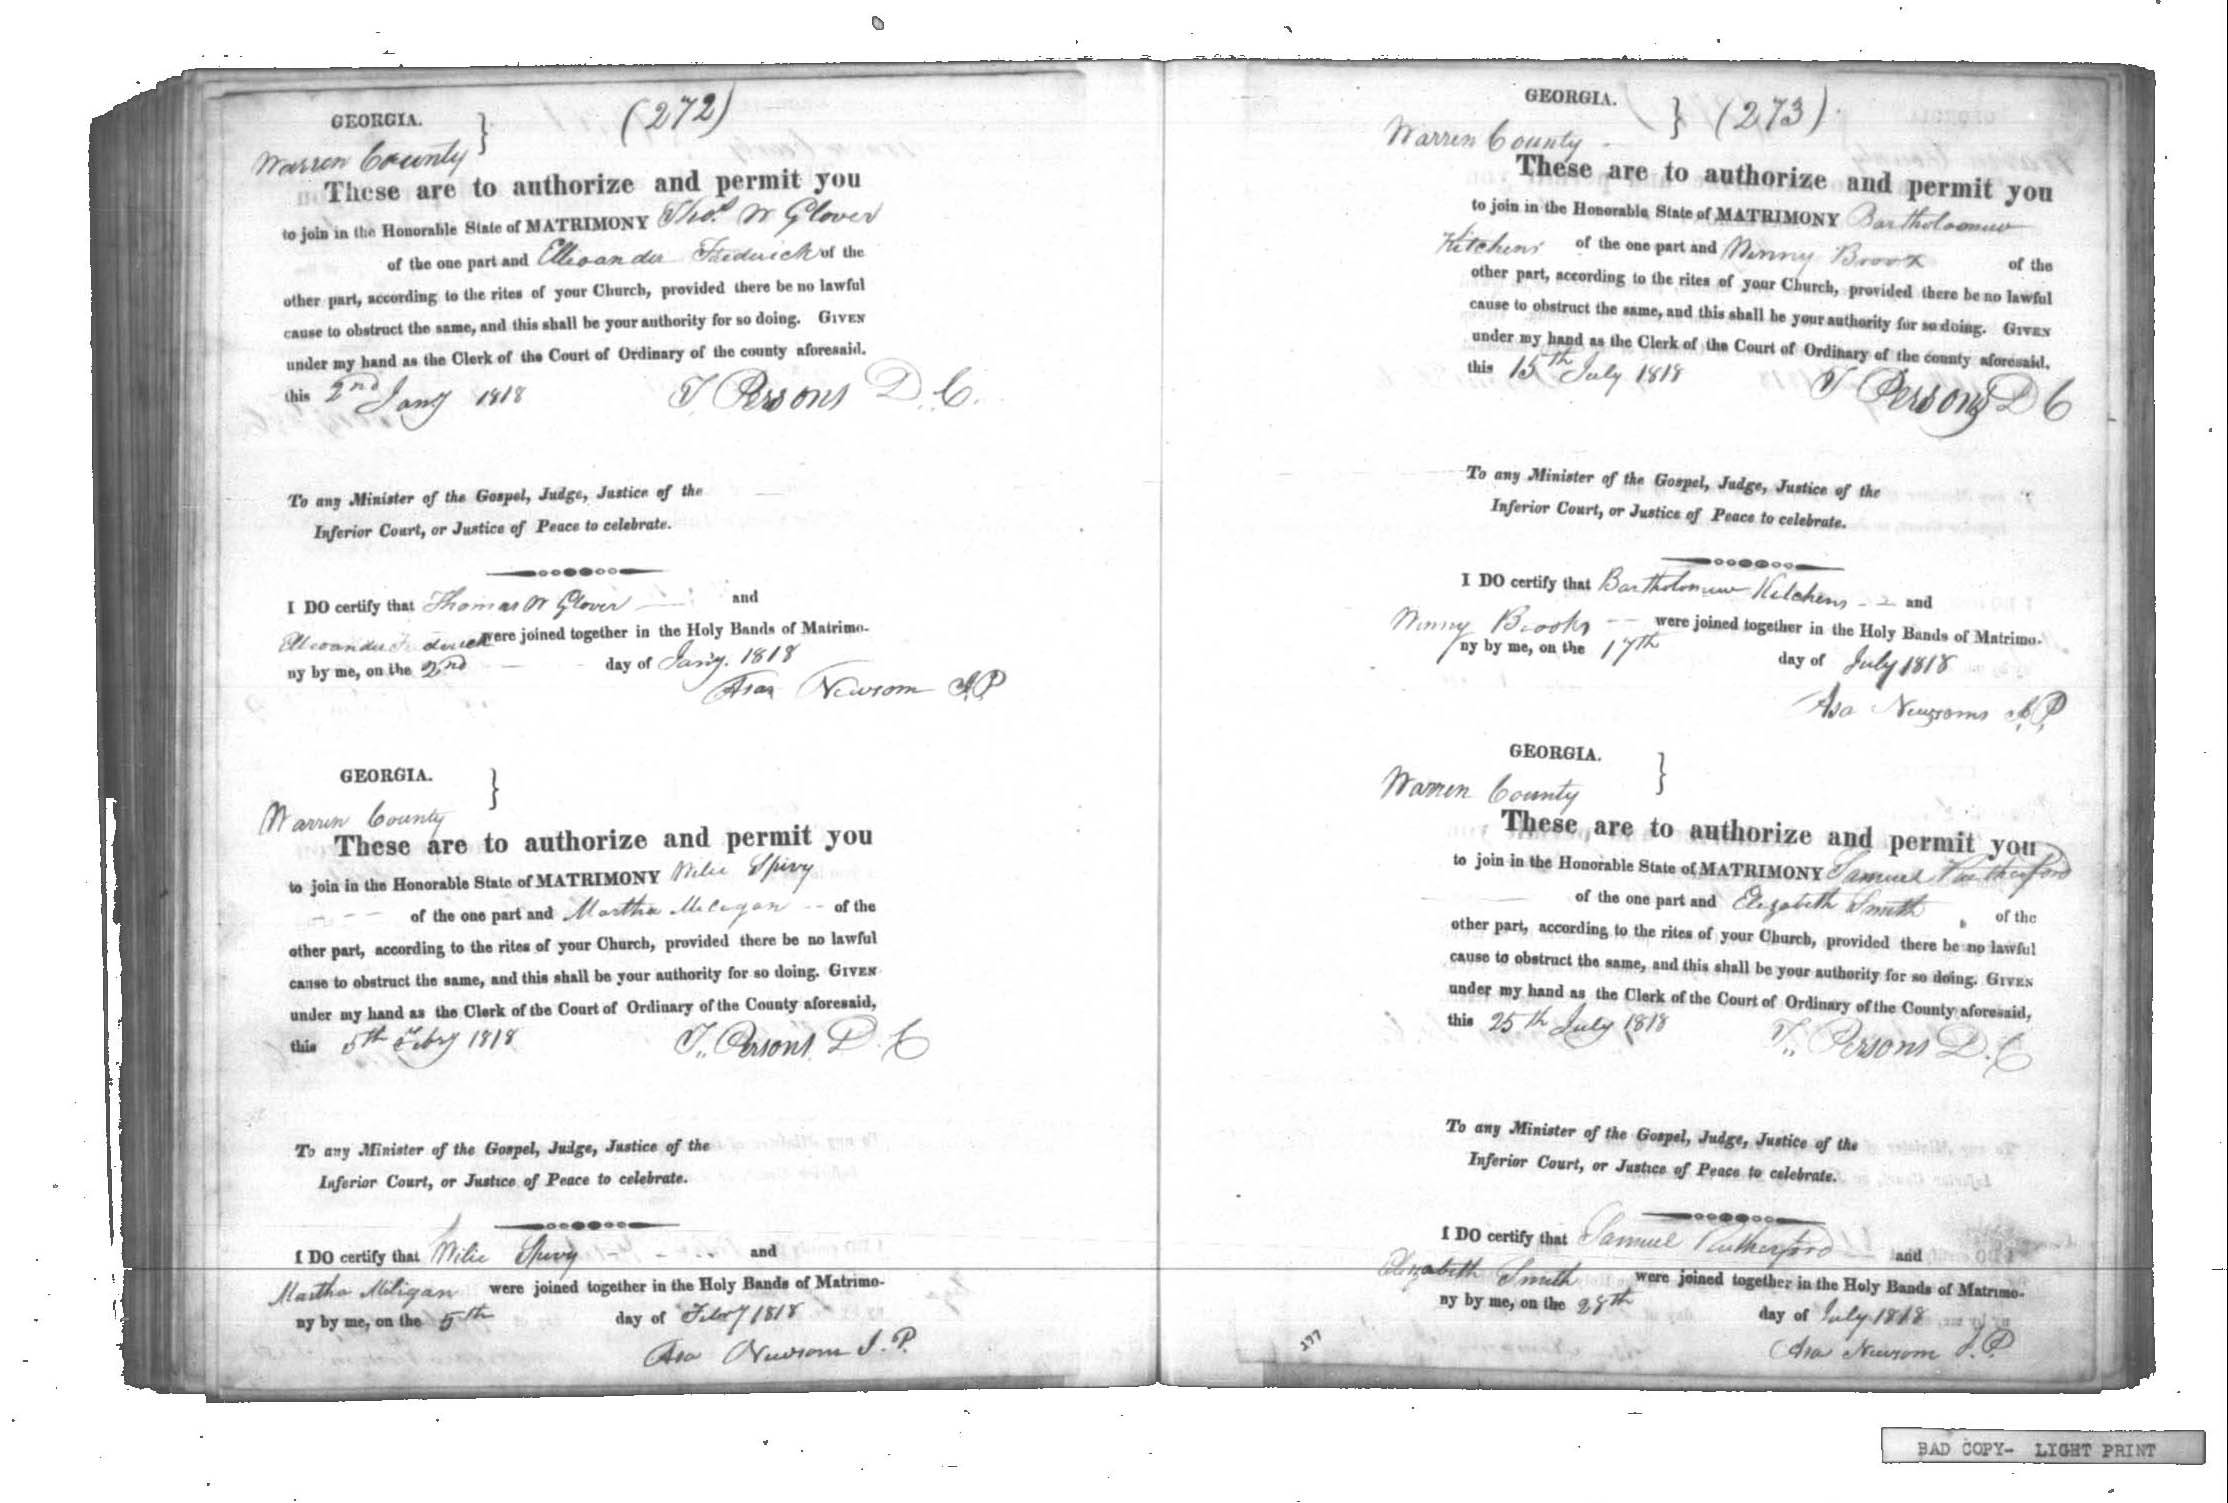 (272)
GEORGIA. }
Warren County
These are to authorize and permit you
to join in the Honorable State of MATRIMONY Thos. W Glover
of the one part and Frederick of the
other part, according to the rites of your Church, provided there be no lawful
cause to obstruct the same, and this shall be your authority for so doing. GIVEN
under my hand as the Clerk of the Court of Ordinary of the county aforesaid.
this 2nd Jany 1818 T Persons D. C.
To any Minister of the Gospel, Judge, Justice of the
Inferior Court, or Justice of Peace to celebrate.
I DO certify that Thomas W Glover and
were joined together in the Holy Bands of Matrimo-
ny by me, on the 2nd day of Jany. 1818
Asa Newsom J.P.
GEORGIA. }
Warren County
These are to authorize and permit you
to join in the Honorable State of MATRIMONY Wilie Spivy
of the one part and Martha Miligan of the
other part, according to the rites of your Church, provided there be no lawful
cause to obstruct the same, and this shall be your authority for so doing. GIVEN
under my hand as the Clerk of the Court of Ordinary of the County aforesaid,
this 5th Feby 1818 T. Persons D. C
To any Minister of the Gospel, Judge, Justice of the
Inferior Court, or Justice of Peace to celebrate.
I DO certify that Wilie Spivy and
Martha Miligan were joined together in the Holy Bands of Matrimo-
ny by me, on the 5th day of Feby 1818
Asa Newsom J. P.
GEORGIA. } (273)
Warren County
These are to authorize and permit you
to join in the Honorable State of MATRIMONY Bartholomew
Kitchens of the one part and Winny Broox of the
other part, according to the rites of your Church, provided there be no lawful
cause to obstruct the same, and this shall be your authority for so doing. GIVEN
under my hand as the Clerk of the Court of Ordinary of the county aforesaid,
this 15th July 1818 T Persons D C
To any Minister of the Gospel, Judge, Justice of the
Inferior Court, or Justice of Peace to celebrate.
I DO certify that Bartholomew Kitchens and
Winny Brooks were joined together in the Holy Bands of Matrimo-
ny by me, on the 17th day of July 1818
Asa Newsoms J.P.
GEORGIA. }
Warren County
These are to authorize and permit you
to join in the Honorable State of MATRIMONY Samuel Rutherford
of the one part and Elizabeth Smith of the
other part, according to the rites of your Church, provided there be no lawful
cause to obstruct the same, and this shall be your authority for so doing. GIVEN
under my hand as the Clerk of the Court of Ordinary of the County aforesaid,
this 25th July 1818 T. Persons D. C
To any Minister of the Gospel, Judge, Justice of the
Inferior Court, or Justice of Peace to celebrate.
I DO certify that Samuel Rutherford and
Elizabeth Smith were joined together in the Holy Bands of Matrimo-
ny by me, on the 28th day of July 1818
Asa Newsom J. P.
BAD COPY- LIGHT PRINT